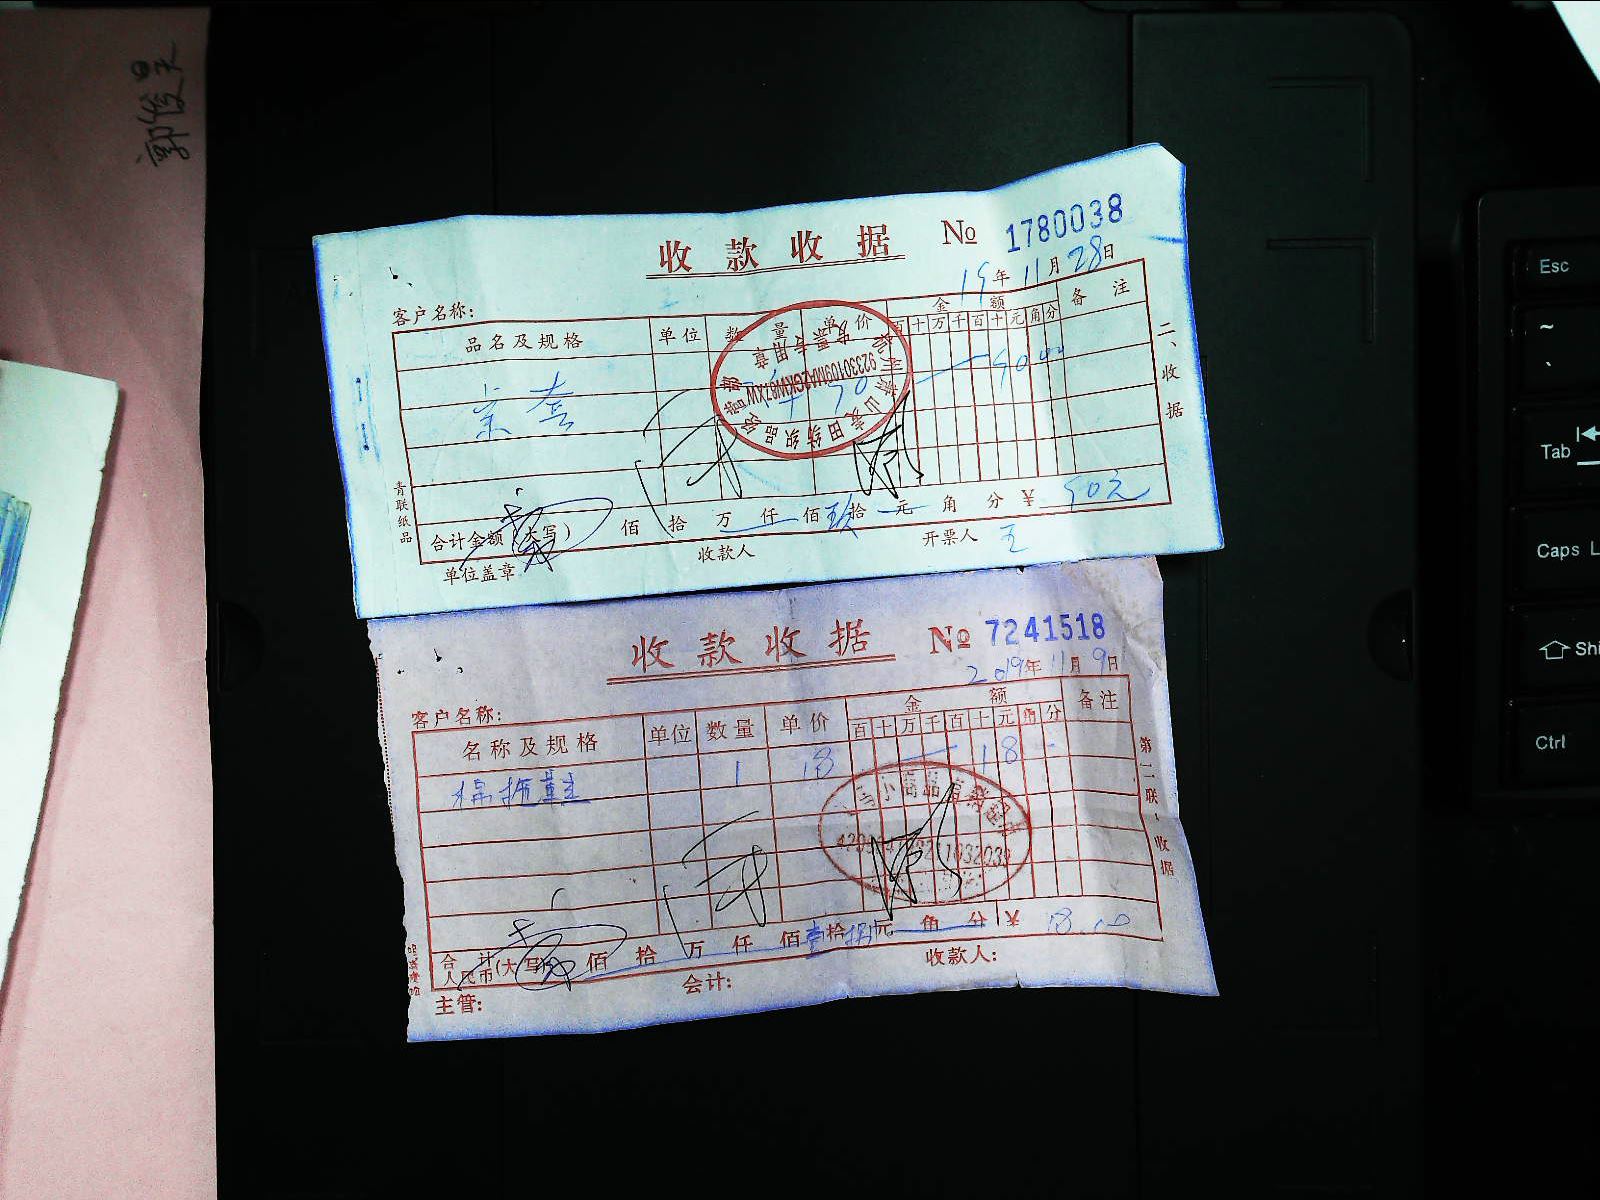 郭俊昊
收款收据 №1780038
19年11月28日
客户名称:
品名及规格 单位 数量 单价 金额 备注
百十万千百十元角分
90 00
合计金额(大写) 佰 拾 万 仟 佰 玖拾 元 角 分 ¥ 90元
单位盖章 收款人 开票人 王
二、收据
青联纸品
92330109MA2GKW87XW
发票专用章
收款收据 №7241518
2019年11月9日
客户名称:
名称及规格 单位 数量 单价 金额 备注
百十万千百十元角分
棉拖鞋 1 18 18
合计人民币(大写) 佰 拾 万 仟 佰 壹拾捌元 角 分 ¥ 18.00
主管: 会计: 收款人:
第二联:收据
Esc
~
Tab
Caps L
Shi
Ctrl